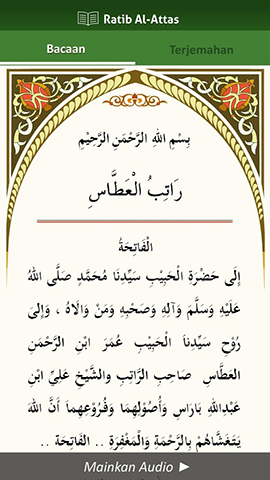 Ratib Al-Attas
Bacaan
Terjemahan
بِسْمِ اللهِ الرَّحْمَنِ الرَّحِيْمِ
رَاتِبُ الْعَطَّاسِ
الْفَاتِحَةُ
إِلَى حَضْرَةِ الْحَبِيْبِ سَيِّدِنَا مُحَمَّدٍ صَلَّى اللهُ
عَلَيْهِ وَسَلَّمَ وَآلِهِ وَصَحْبِهِ وَمَنْ وَالَاهُ ، وَإِلَىَ
رُوْحِ سَيِّدِنَا الْحَبِيْبِ عُمَرَ ابْنِ الرَّحْمَنِ
الْعَطَّاسِ صَاحِبِ الرَّاتِبِ وَالشَّيْخِ عَلِيِّ ابْنِ
عَبْدِاللهِ بَارَاسِ وَأُصُوْلِهِمَا وَفُرُوْعِهِمَا أَنَّ اللهَ
يَتَغَشَّاهُمْ بِالرَّحْمَةِ وَالْمَغْفِرَةِ .. الفَاتِحَةْ ..
Mainkan Audio ►